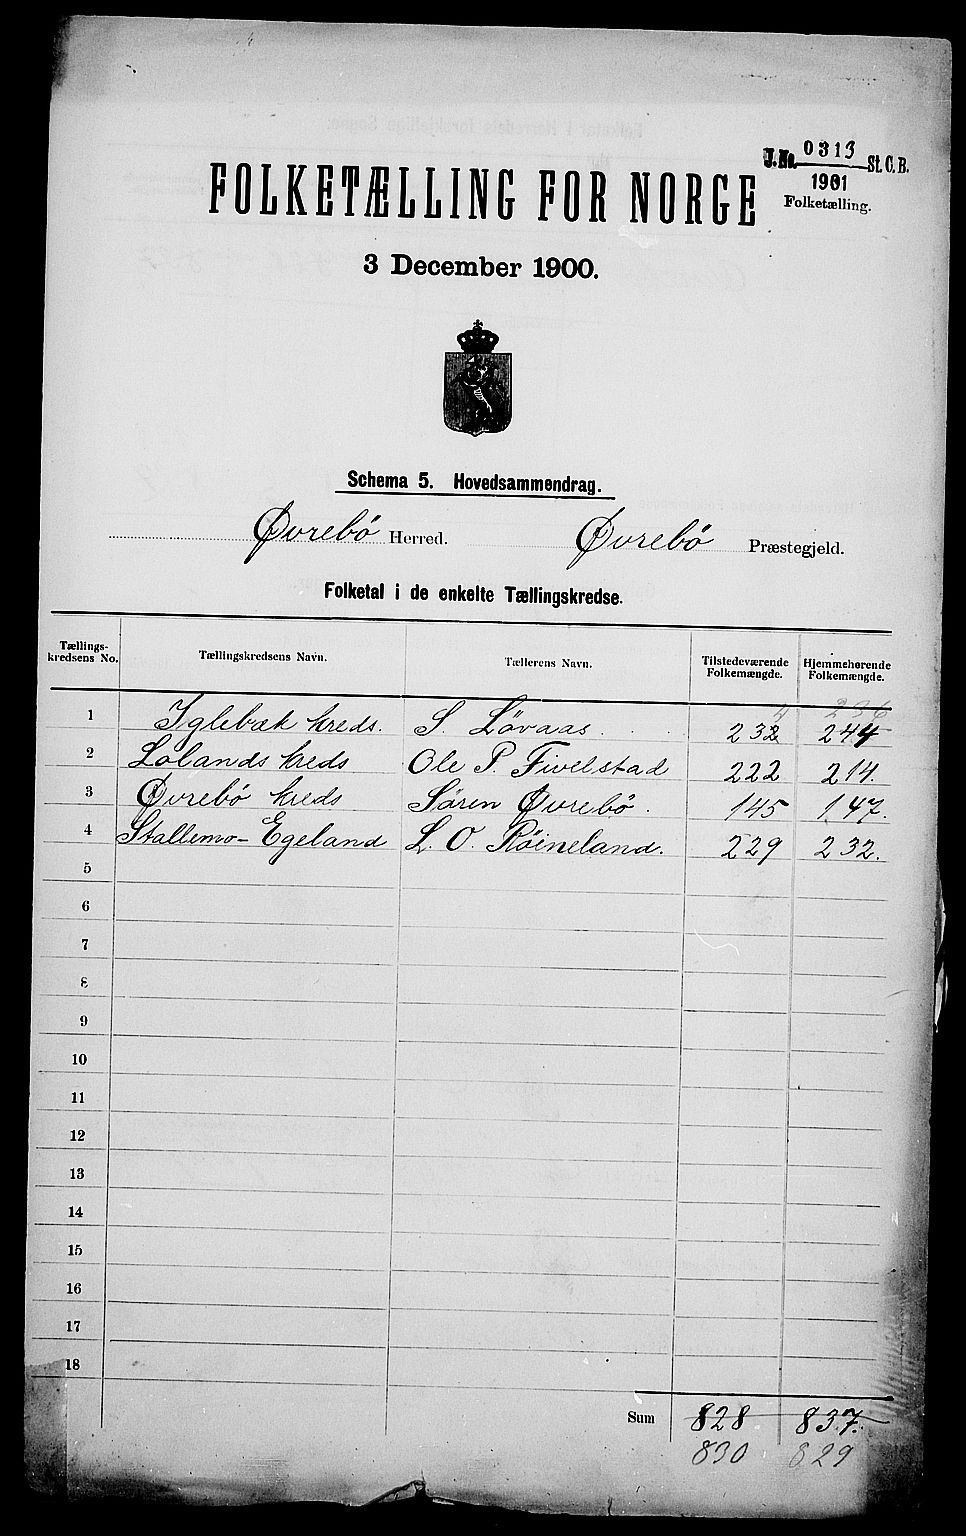 J.No. 0313 St. C. B.
1901
Folketælling.
FOLKETÆLLING FOR NORGE
3 December 1900.
Schema 5. Hovedsammendrag.
Øvrebø Herred. Øvrebø Præstegjeld.
Folketal i de enkelte Tællingskredse.
Tællings-
kredsens No. Tællingskredsens Navn. Tællerens Navn. Tilstedeværende Folkemængde. Hjemmehørende Folkemængde.
4 236
1 Iglebæk kreds. S. Løvaas 232 244
2 Lølands kreds Ole P. Fivelstad 222 214.
3 Øvrebø kreds Søren Øvrebø. 145 147.
4 Stallemo-Egeland L. O. Røineland. 229 232.
5
6
7
8
9
10
11
12
13
14
15
16
17
18
Sum 828 837.
830 829